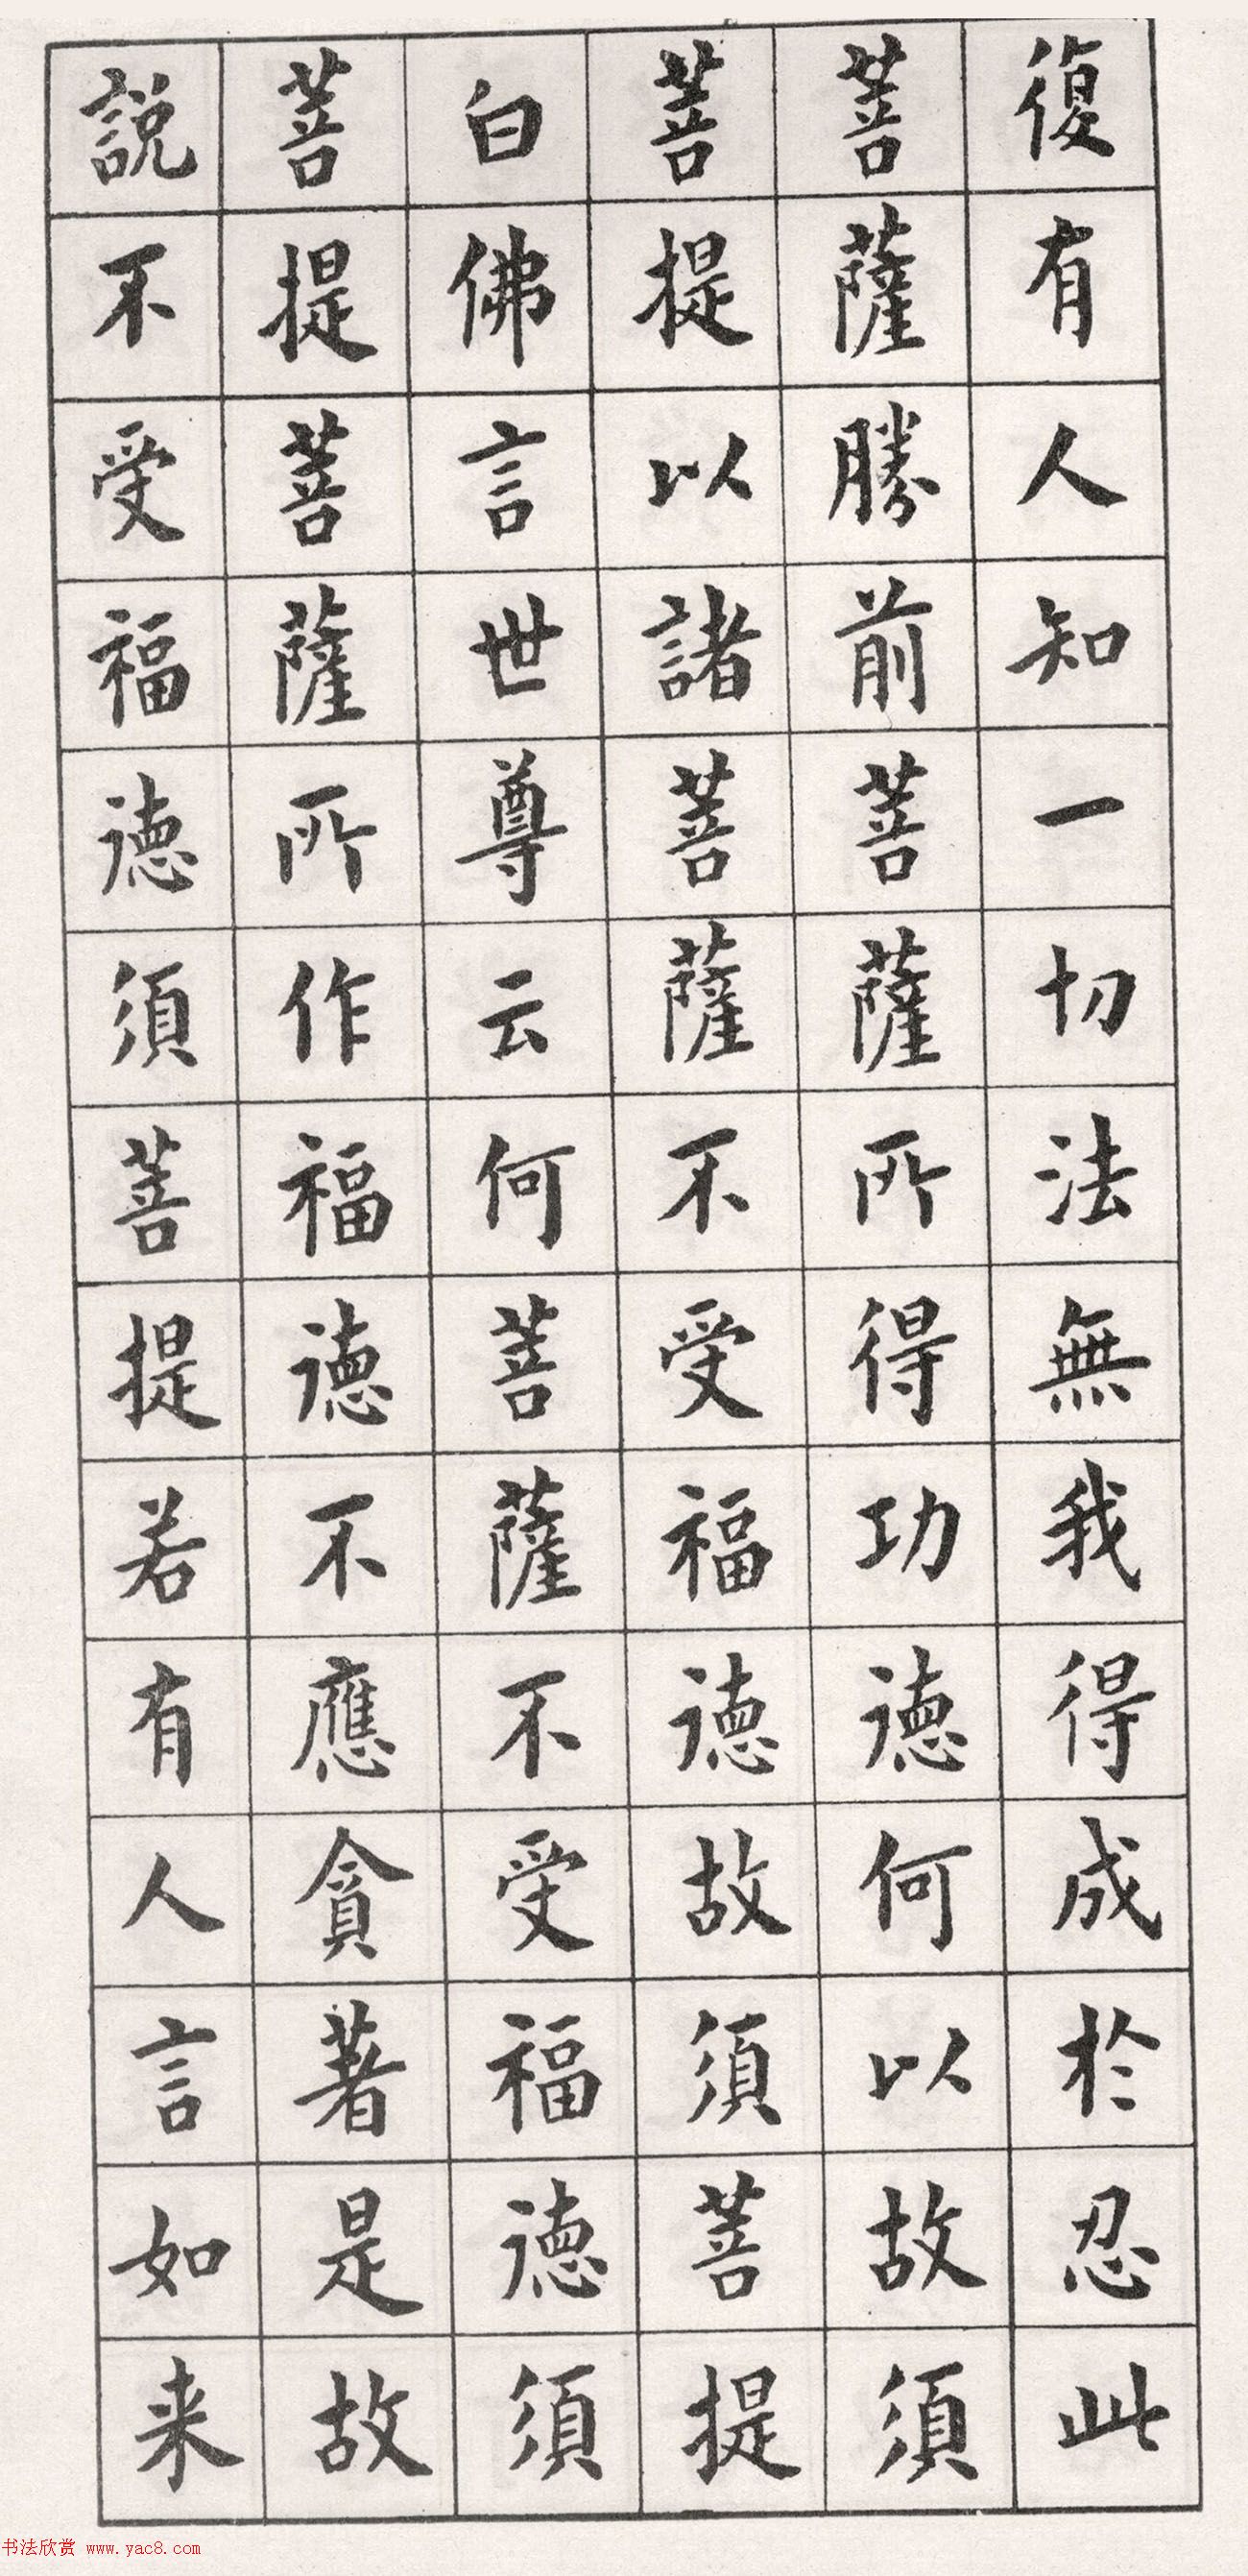 復有人知一切法無我得成於忍此
菩薩勝前菩薩所得功德何以故須
菩提以諸菩薩不受福德故須菩提
白佛言世尊云何菩薩不受福德須
菩提菩薩所作福德不應貪著是故
說不受福德須菩提若有人言如来
书法欣赏 www.yac8.com